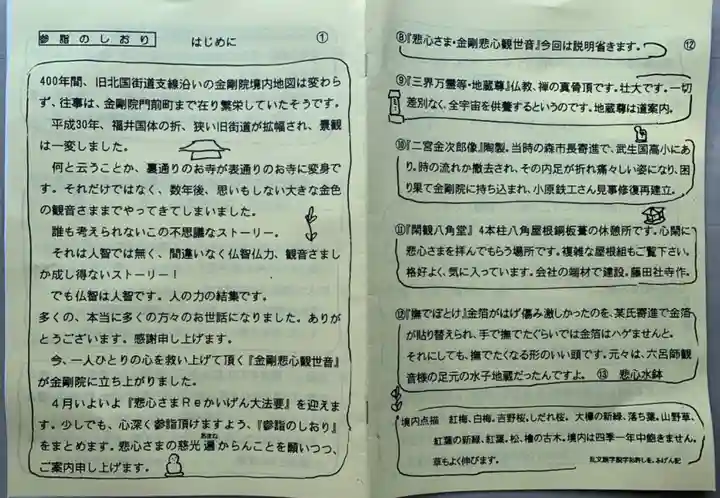 参詣のしおり はじめに ①
400年間、旧北国街道支線沿いの金剛院境内地図は変わら
ず、往事は、金剛院門前町まで在り繁栄していたそうです。
平成30年、福井国体の折、狭い旧街道が拡幅され、景観
は一変しました。
何と云うことか、裏通りのお寺が表通りのお寺に変身で
す。それだけではなく、数年後、思いもしない大きな金色
の観音さままでやってきてしまいました。
誰も考えられないこの不思議なストーリー。
それは人智では無く、間違いなく仏智仏力、観音さまし
か成し得ないストーリー!
でも仏智は人智です。人の力の結集です。
多くの、本当に多くの方々のお世話になりました。ありが
とうございます。感謝申し上げます。
今、一人ひとりの心を救い上げて頂く『金剛悲心観世音』
が金剛院に立ち上がりました。
4月いよいよ『悲心さまReかいげん大法要』を迎えま
す。少しでも、心深く参詣頂けますよう、『参詣のしおり』
をまとめます。悲心さまの慈光遍(あまね)からんことを願いつつ、
ご案内申し上げます。
⑫
⑧『悲心さま・金剛悲心観世音』今回は説明省きます。
⑨『三界万霊等・地蔵尊』仏教、禅の真骨頂です。壮大です。一切
差別なく、全宇宙を供養するというのです。地蔵尊は道案内。
⑩『二宮金次郎像』陶製。当時の森市長寄進で、武生国高小にあ
り。時の流れか撤去され、その内足が折れ痛々しい姿になり、困
り果て金剛院に持ち込まれ、小原鉄工さん見事修復再建立。
⑪『閑観八角堂』4本柱八角屋根銅板葺の休憩所です。心閑に
悲心さまを拝んでもらう場所です。複雑な屋根組もご覧下さい。
格好よく、気に入っています。会社の端材で建設。藤田社寺作。
⑫『撫でぼとけ』金箔がはげ傷み激しかったのを、某氏寄進で金箔
が貼り替えられ、手で撫でたぐらいでは金箔はハゲませんと。
それにしても、撫でたくなる形のいい頭です。元々は、六呂師観
音様の足元の水子地蔵だったんですよ。 ⑬ 悲心水鉢
境内点描 紅梅、白梅。吉野桜。しだれ桜。大欅の新緑、落ち葉。山野草、
紅葉の新緑、紅葉。松、檜の古木。境内は四季一年中飽きません。
草もよく伸びます。